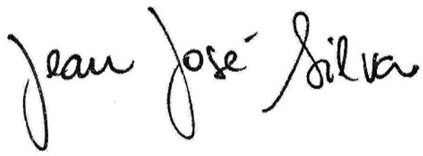 Jean José Silva